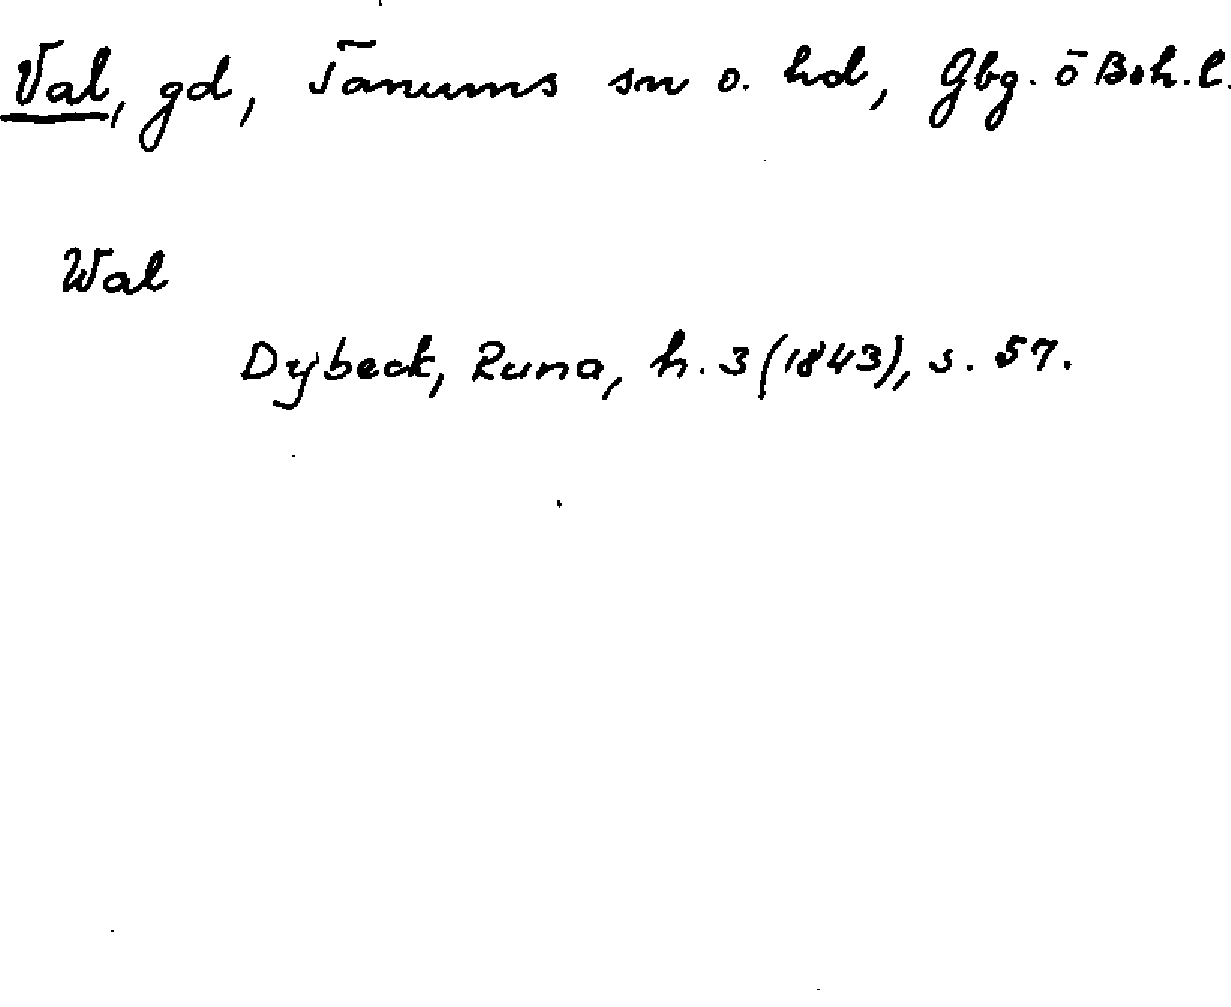 Val, gd, Tanums sn o. hd, Gbg. o Boh. l.
Wal
Dybeck, Runa, h. 3 (1843), s. 57.